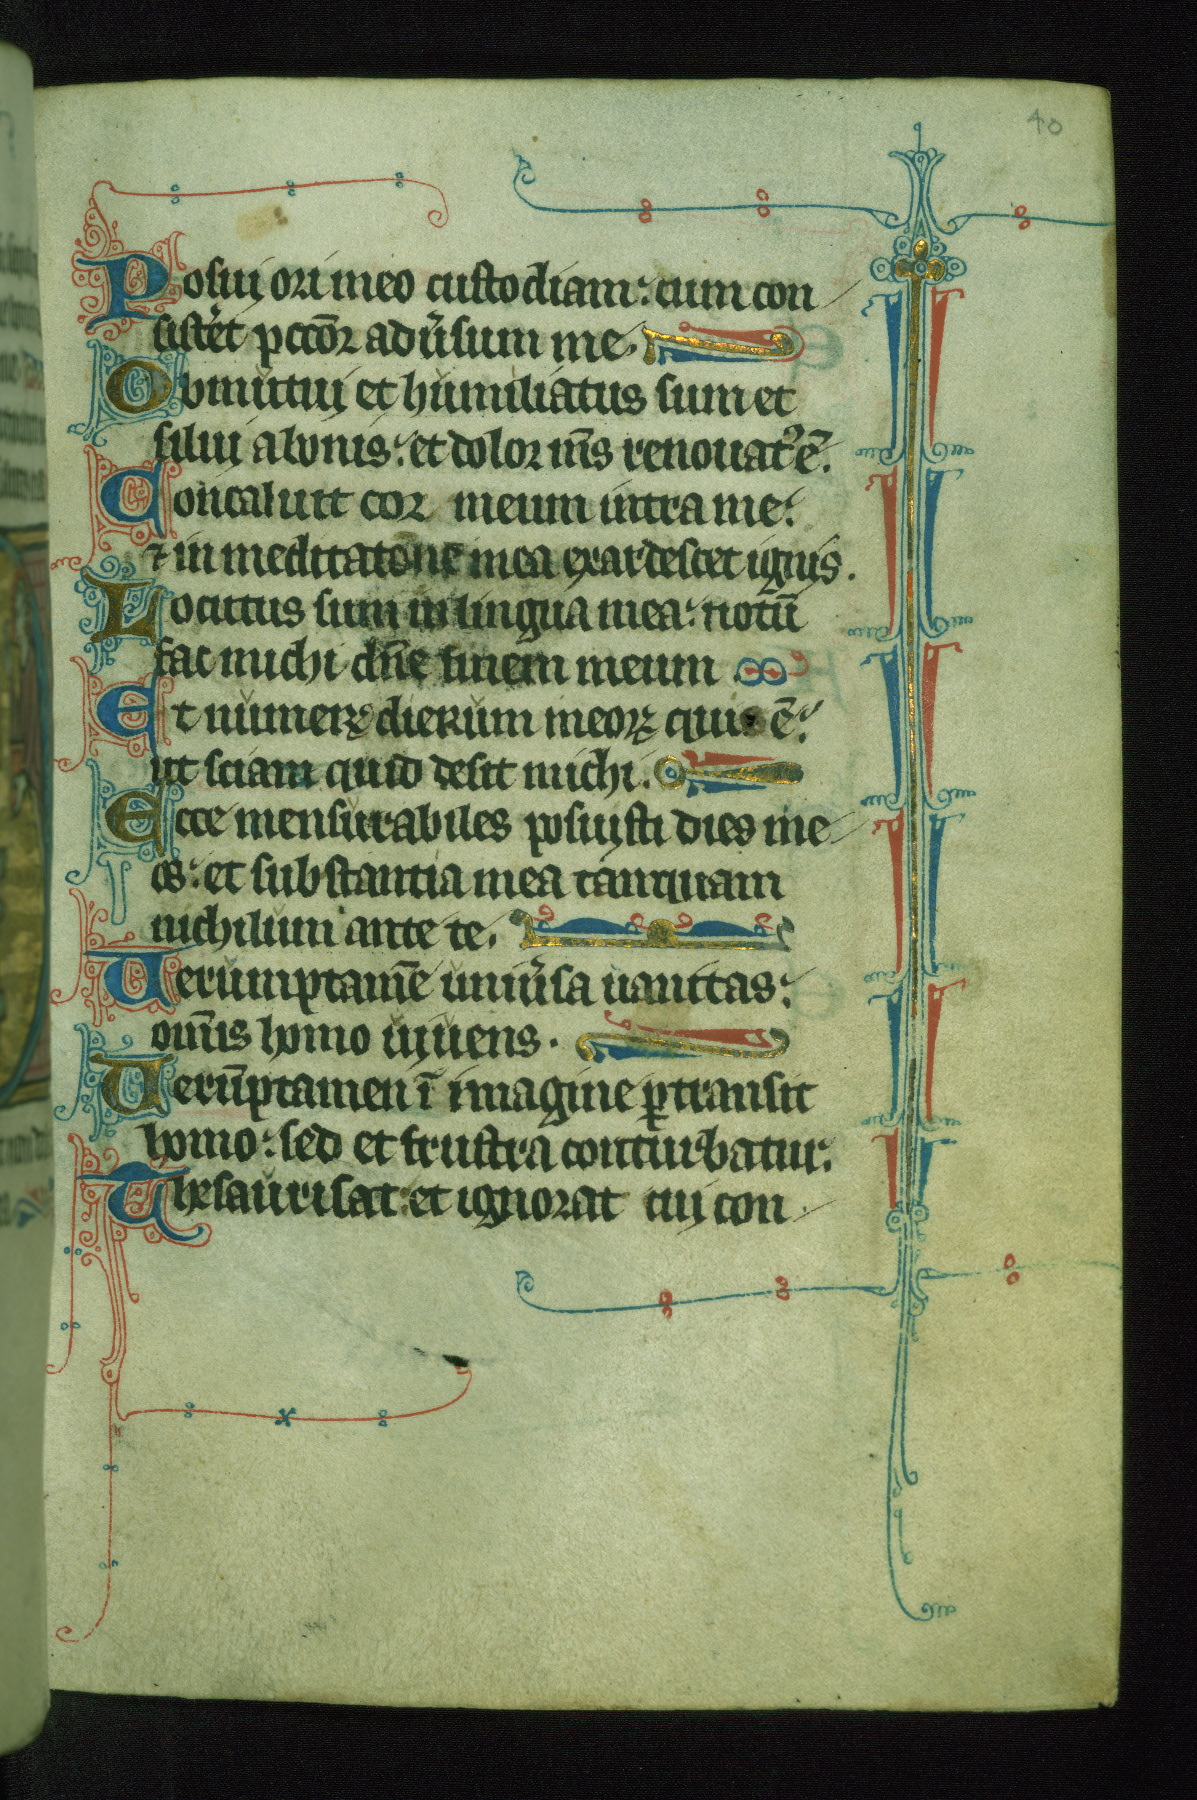 40
Posui ori meo custodiam: cum con
sist̾et pccoꝝ adu̾sum me.
Obmutui et humiliatus sum et
silui a bonis: et dolor m̄s renouatꝰ ē.
Concaluit cor meum intra me:
⁊ in meditatone mea exardescet ignis.
Locutus sum in lingua mea: notū
fac michi dn̄e finem meum
Et numerꝝ dierum meoꝝ quis ē:
ut sciam quid desit michi.
Ecce mensurabiles posuisti dies me
os: et substantia mea tanquam
nichilum ante te.
Uerumptam̄e uniu̾sa uanitas:
om̄is homo uiuens.
Uerūptamen ī imagine ꝑtransit
homo: sed et frustra conturbatur.
Thesaurisat: et ignorat cui con